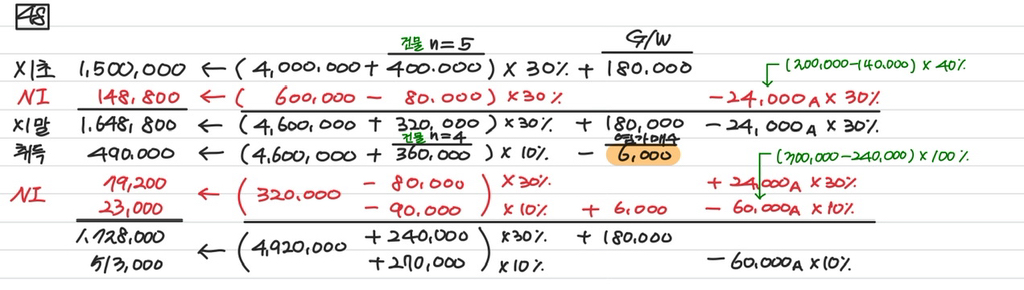 48
건물 n=5 G/W
X1초 1,500,000 ← ( 4,000,000 + 400.000 ) × 30% + 180.000 (200,000-140,000) × 40%
NI 148,800 ← ( 600,000 - 80.000 ) × 30% -24,000A × 30%
X1말 1.648,800 ← ( 4,600,000 + 320,000 ) × 30% + 180,000 - 24,000A × 30%
건물 n=4 염가매수
취득 490.000 ← ( 4,600,000 + 360,000 ) × 10% - 6,000 (300,000-240,000) × 100%
79,200 - 80,000 × 30% + 24,000A × 30%
NI ← ( 320.000 )
23,000 - 90.000 × 10% + 6,000 - 60,000A × 10%
1.728,000 + 240,000 × 30% + 180.000
← ( 4,920,000 )
513,000 + 270,000 × 10% - 60,000A × 10%